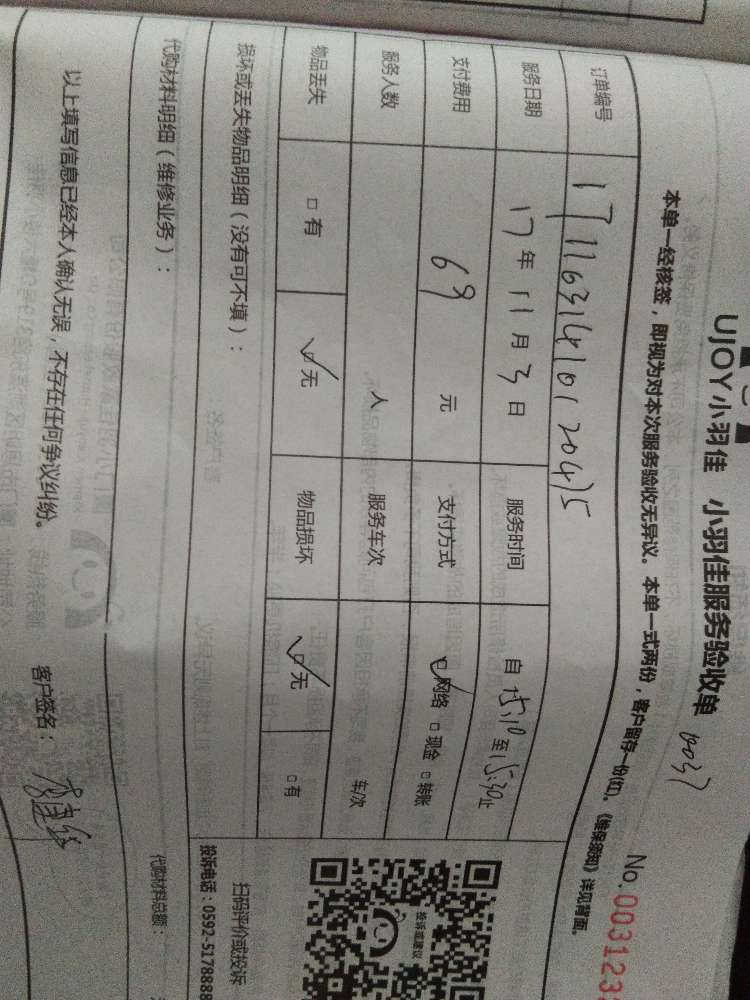 UJOY小羽佳 小羽佳服务验收单 0037
No. 003123
本单一经核签，即视为对本次服务验收无异议。本单一式两份，客户留存一份(红)。《维保须知》详见背面。
订单编号 17116314101 20415
服务日期 17年11月3日 服务时间 自15:10至15:30止
支付费用 69 元 支付方式 ☑网络 □现金 □转账
服务人数 人 服务车次 车/次
物品丢失 □有 ☑无 物品损坏 ☑无 □有
损坏或丢失物品明细（没有可不填）：
扫码评价或投诉
投诉电话：0592-5178888
投诉或建议
代购材料明细（维修业务）：
代购材料总额：
以上填写信息已经本人确认无误，不存在任何争议纠纷。
客户签名：